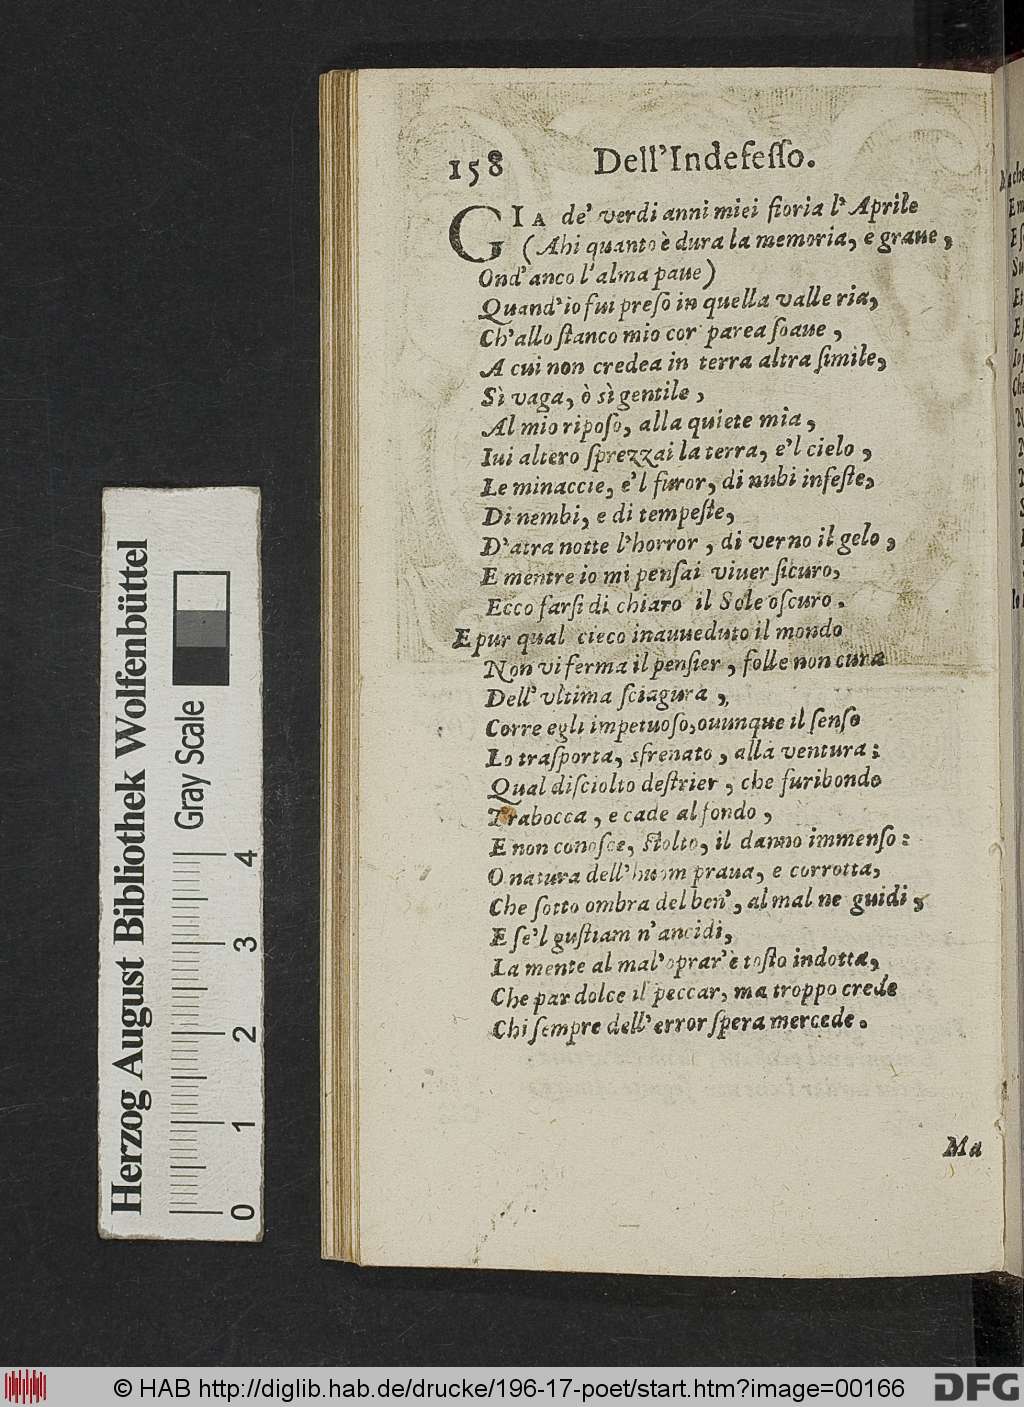 158 Dell'Indefeſſo.
GIA de' verdi anni miei fioria l' Aprile
(Ahi quanto è dura la memoria, e graue,
Ond'anco l'alma paue)
Quand'io fui preſo in quella valle ria,
Ch'allo ſtanco mio cor parea ſoaue,
A cui non credea in terra altra ſimile,
Sì vaga, ò sì gentile,
Al mio ripoſo, alla quiete mia,
Iui altero ſprezzai la terra, e'l cielo,
Le minaccie, e'l furor, di nubi infeſte,
Di nembi, e di tempeſte,
D'atra notte l'horror, di verno il gelo,
E mentre io mi penſai viuer ſicuro,
Ecco farſi di chiaro il Sole oſcuro.
E pur qual cieco inauueduto il mondo
Non vi ferma il penſier, folle non cura
Dell' vltima ſciagura,
Corre egli impetuoſo, ouunque il ſenſo
Lo traſporta, sfrenato, alla ventura:
Qual diſciolto deſtrier, che furibondo
Trabocca, e cade al fondo,
E non conoſce, ſtolto, il danno immenſo:
O natura dell'huom praua, e corrotta,
Che ſotto ombra del ben', al mal ne guidi,
E ſe'l guſtiam n'ancidi,
La mente al mal'oprar'è toſto indotta,
Che par dolce il peccar, ma troppo crede
Chi ſempre dell'error ſpera mercede.
Ma
Herzog August Bibliothek Wolfenbüttel
Gray Scale
0 1 2 3 4
© HAB http://diglib.hab.de/drucke/196-17-poet/start.htm?image=00166
DFG